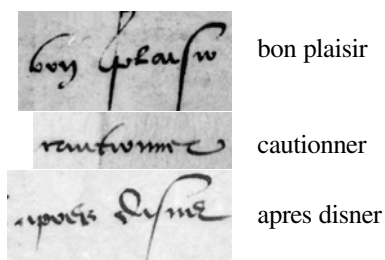 bon plaisir bon plaisir
cautionner cautionner
apres disner apres disner